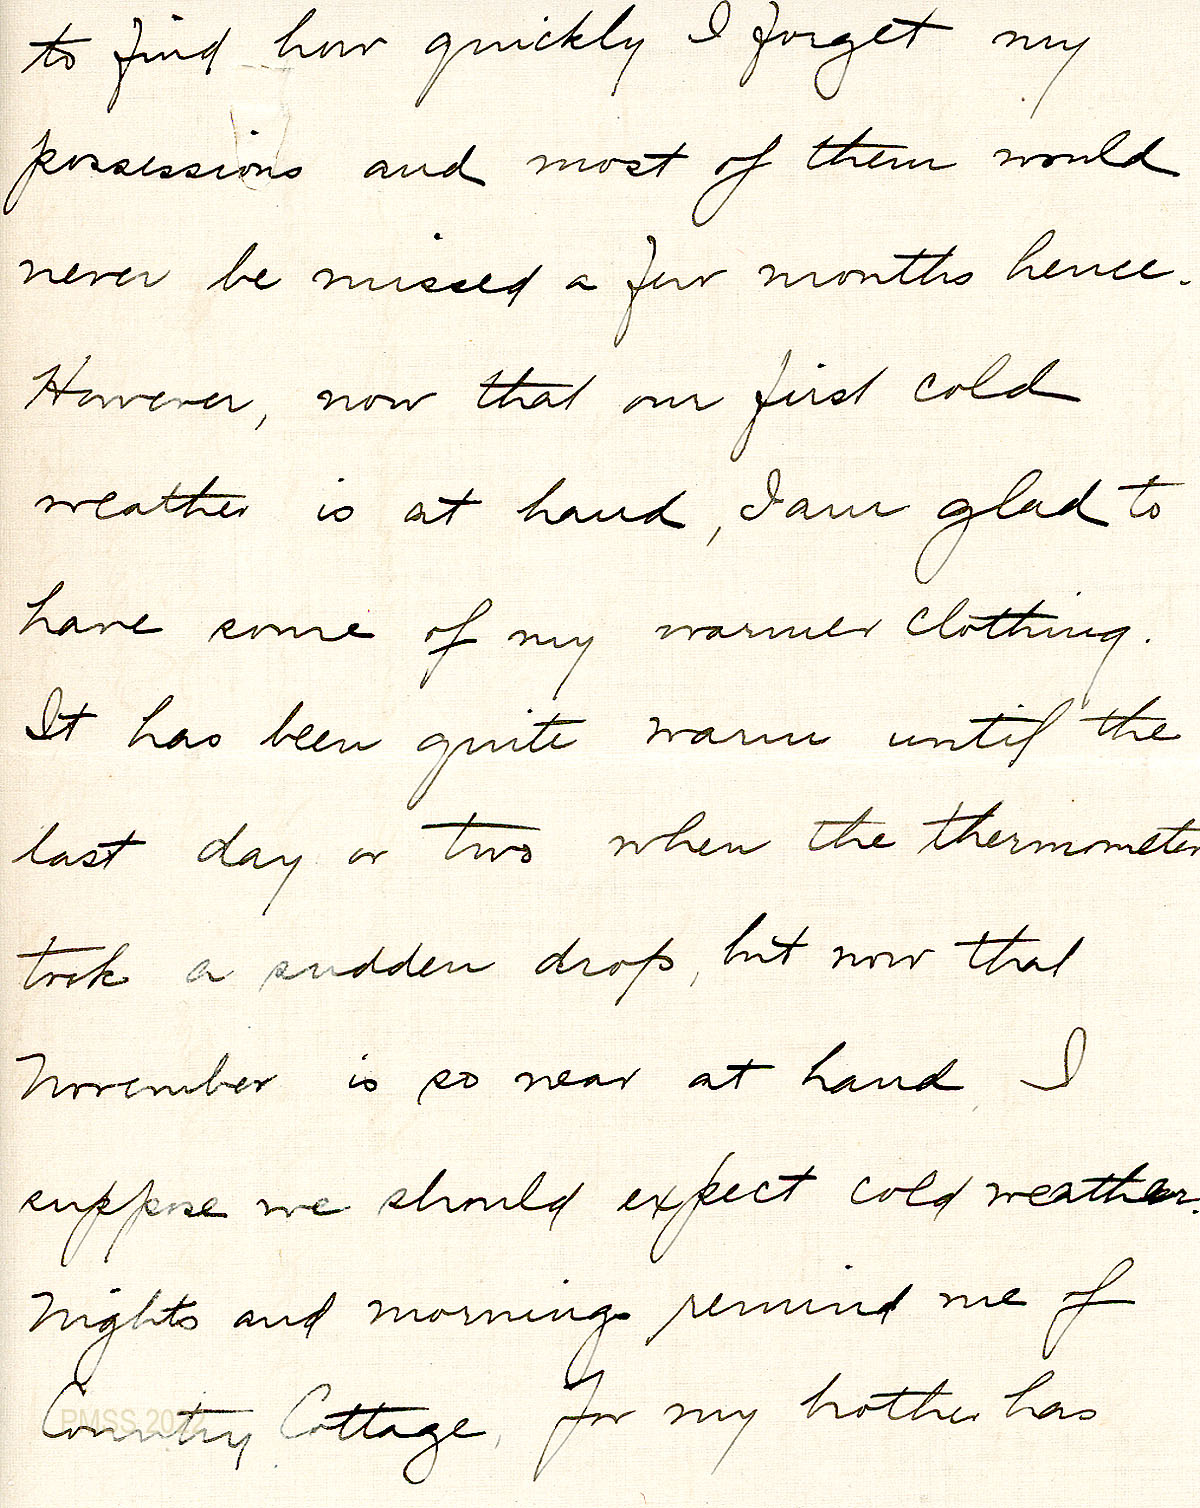 to find how quickly I forget my
possessions and most of them would
never be missed a few months hence.
However, now that our first cold
weather is at hand, I am glad to
have some of my warmer clothing.
It has been quite warm until the
last day or two when the thermometer
took a sudden drop, but now that
November is so near at hand, I
suppose we should expect cold weather.
Nights and mornings remind me of
Country Cottage, for my brother has